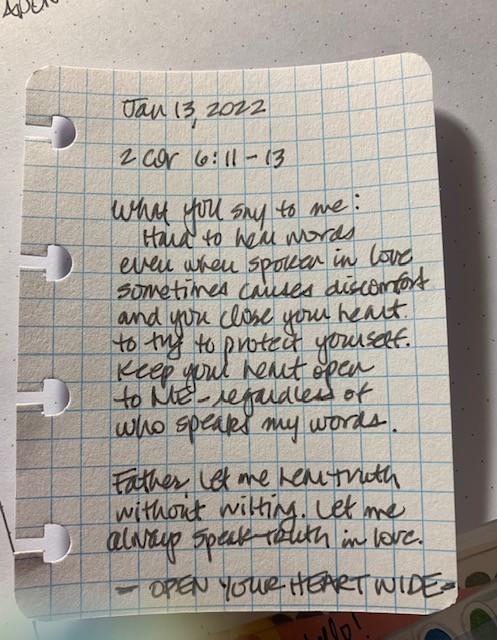 Jan 13, 2022
2 Cor 6:11-13
What you say to me:
Hard to hear words
even when spoken in love
sometimes causes discomfort
and you close your heart
to try to protect yourself.
Keep your heart open
to ME - regardless of
who speaks my words.
Father let me hear truth
without wilting. Let me
always speak truth in love.
- OPEN YOUR HEART WIDE -
hello!